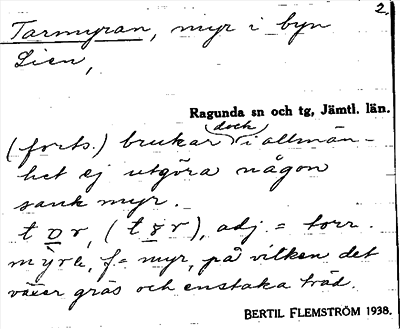 2.
Tarmyran, myr i byn
Lien,
Ragunda sn och tg, Jämtl. län.
(forts.) brukar dock i allmän-
het ej utgöra någon
sank myr.
t o r, (t ɤ r), adj. = torr.
myrh, f = myr, på vilken det
växer gräs och enstaka träd.
BERTIL FLEMSTRÖM 1938.